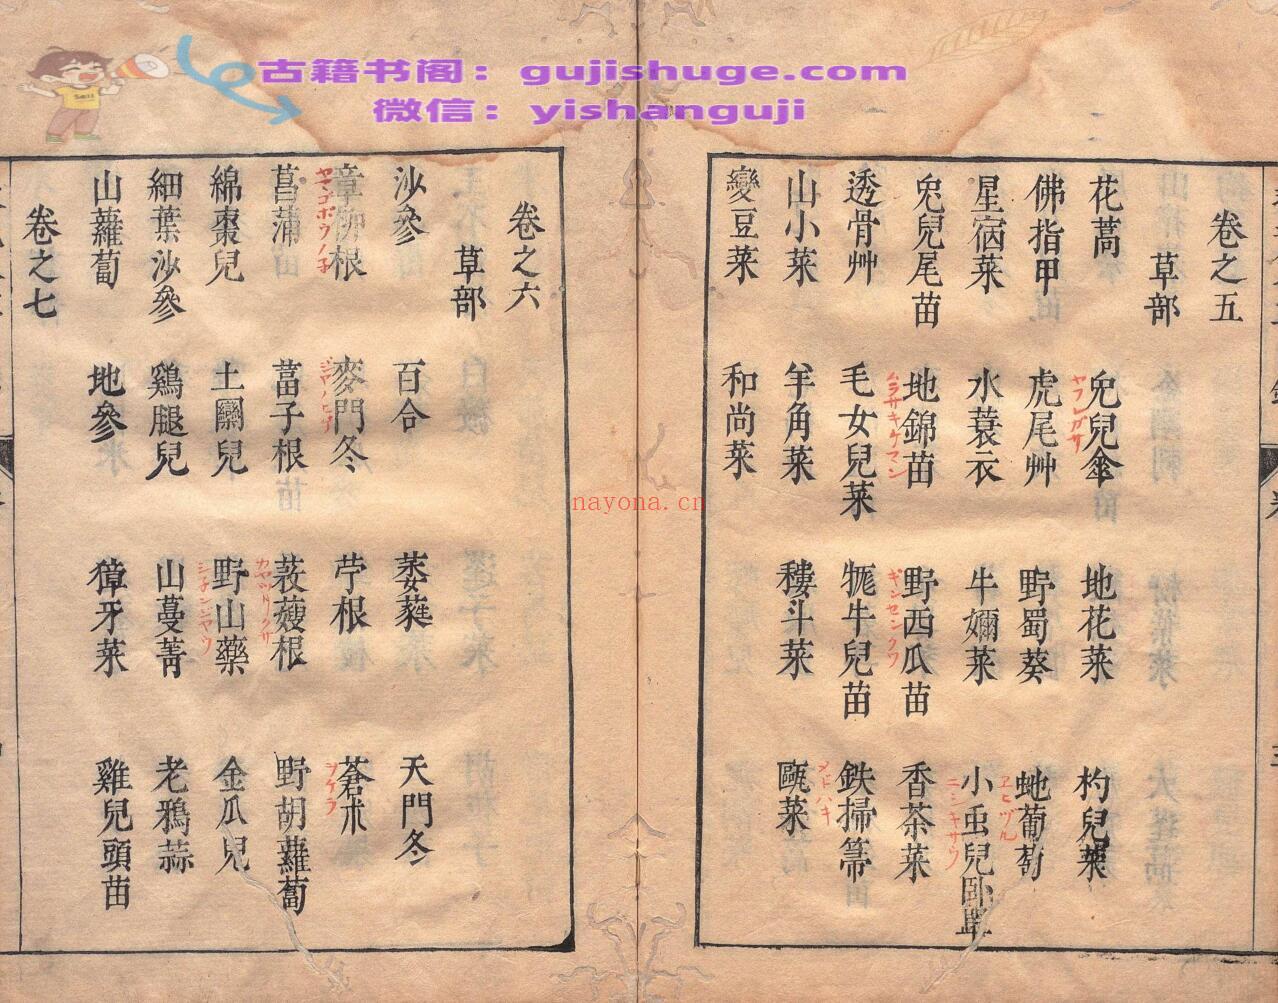 古籍书阁：gujishuge.com
微信：yishanguji
卷之五
草部
花蒿 兒兒傘 地花菜 杓兒菜
ヤブレガサ
佛指甲 虎尾艸 野蜀葵 虵葡萄
ヱビヅル
星宿菜 水蓑衣 牛嬭菜 小虫兒臥單
ニシキサウ
兒兒尾苗 地錦苗 野西瓜苗 香茶菜
ムラサキケマン
ギンセンクワ
透骨艸 毛女兒菜 牻牛兒苗 鉄掃箒
メドハギ
山小菜 羊角菜 耬斗菜 甌菜
變豆菜 和尚菜
卷之六
草部
沙參 百合 萎蕤 天門冬
章柳根 麥門冬 苧根 蒼朮
ヤマゴボウノ子
ヲケラ
菖蒲 葍子根 菽蔆根 野胡蘿蔔
カヤツリクサ
綿棗兒 土圞兒 野山藥 金瓜兒
細葉沙參 鷄腿兒 山蔓菁 老鴉蒜
山蘿蔔 地參 獐牙菜 雞兒頭苗
卷之七
nayona.cn